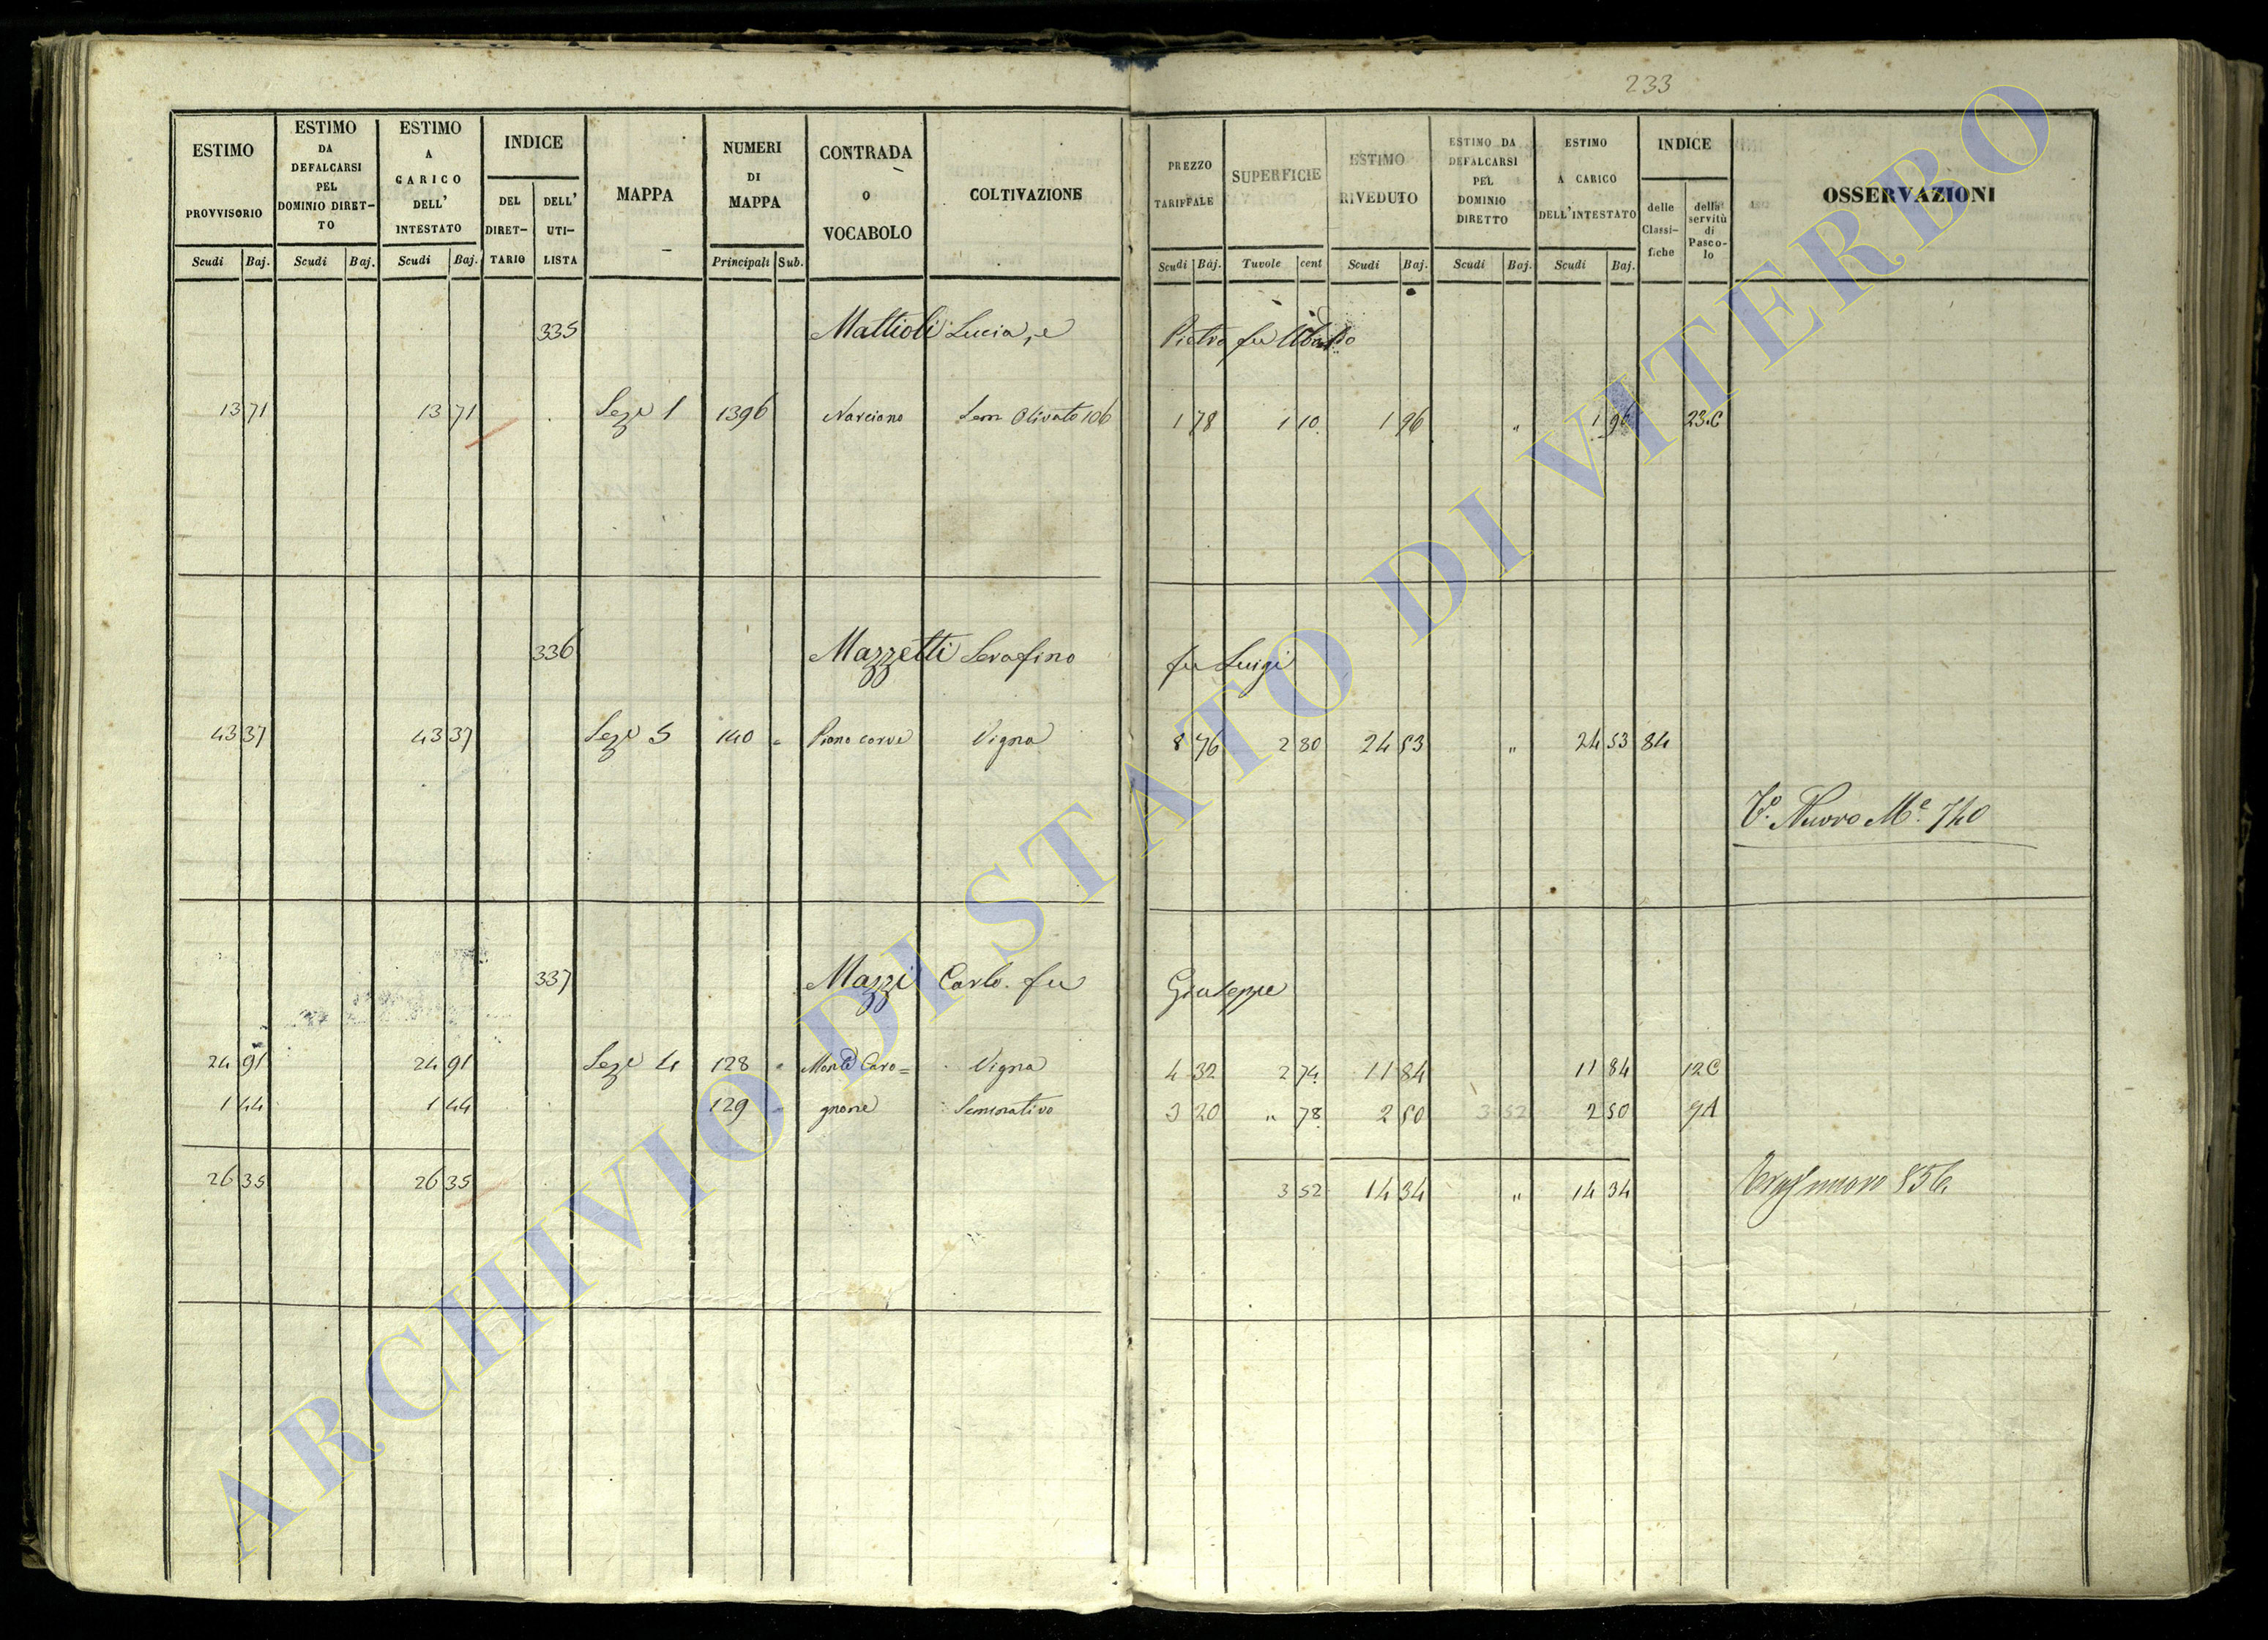 233
ESTIMO PROVVISORIO
ESTIMO DA DEFALCARSI PEL DOMINIO DIRET-TO
ESTIMO A CARICO DELL' INTESTATO
INDICE
DEL DIRET-TARIO
DELL' UTI-LISTA
MAPPA
NUMERI DI MAPPA
CONTRADA O VOCABOLO
COLTIVAZIONE
PREZZO TARIFFALE
SUPERFICIE
ESTIMO RIVEDUTO
ESTIMO DA DEFALCARSI PEL DOMINIO DIRETTO
ESTIMO A CARICO DELL'INTESTATO
INDICE
delle Classi-fiche
della servitù di Pasco-lo
OSSERVAZIONI
Scudi Baj. Scudi Baj. Scudi Baj. Principali Sub. Scudi Baj. Tuvole cent Scudi Baj. Scudi Baj. Scudi Baj.
335 Mattioli Lucia, e Pietro fu Ubaldo
13 71 13 71 Seze 1 1396 Narciano Sem Olivato 106 1 78 1 10 1 96 " 1 96 23.C
336 Mazzetti Serafino fu Luigi
43 37 43 37 Seze 5 140 " Piano corve Vigna 8 76 2 80 24 53 " 24 53 84
V.o Nuovo M.e 740
337 Mazzi Carlo fu Giuseppe
24 91 24 91 Seze 4 128 " Monte Caro= Vigna 4 32 2 74 11 84 11 84 12C
1 44 1 44 129 " gnone Seminativo 3 20 " 78 2 50 3 52 2 50 9A
26 35 26 35 3 52 14 34 " 14 34 nuovo 856
ARCHIVIO DI STATO DI VITERBO